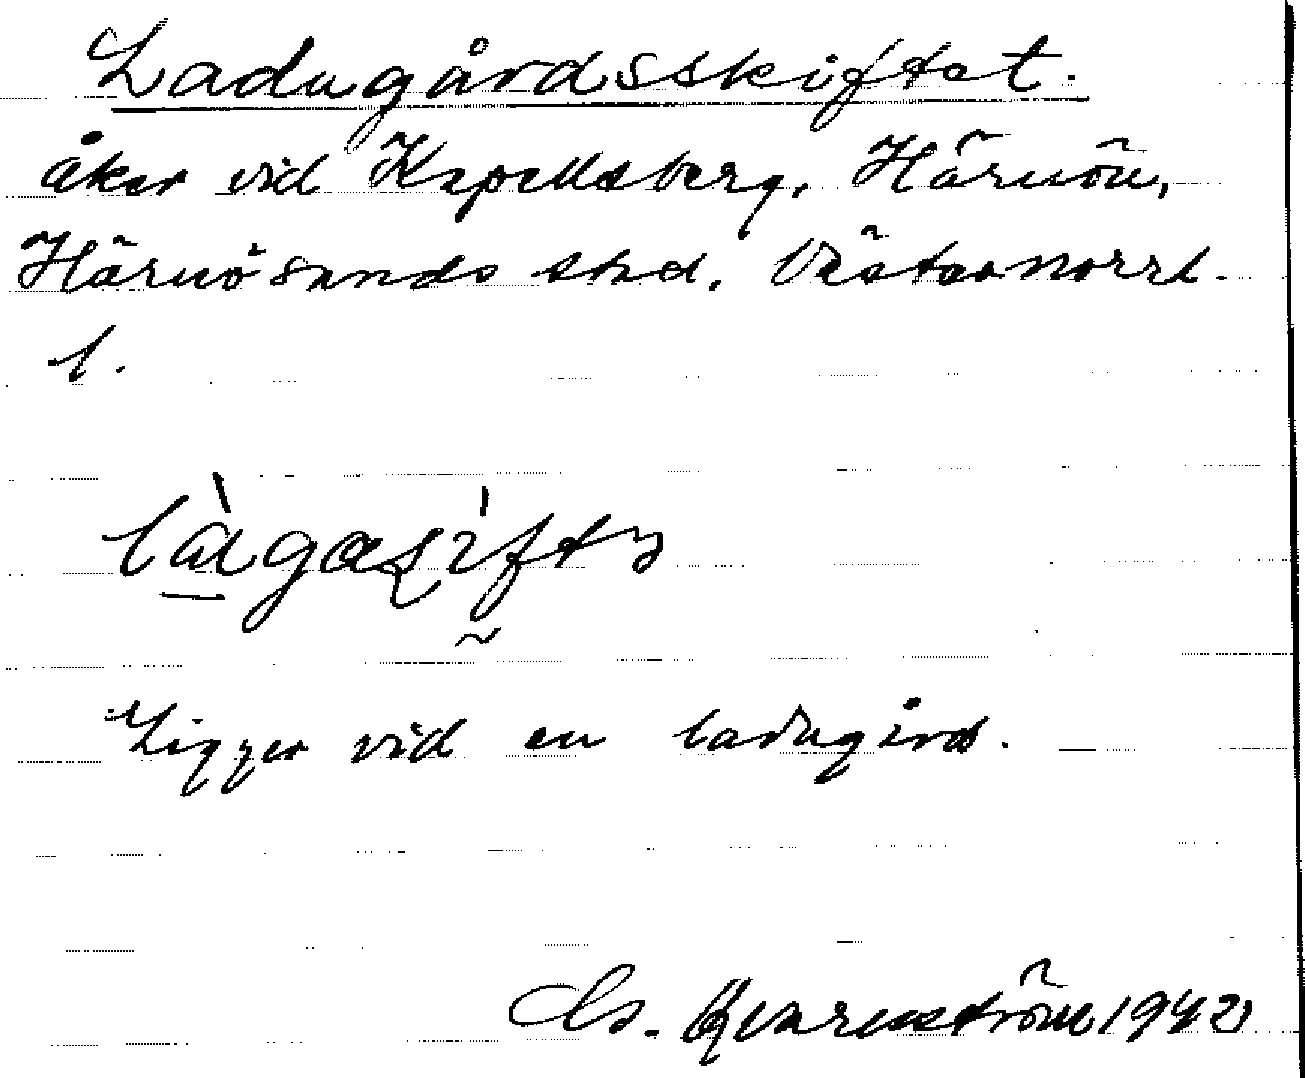 Ladugårdsskiftet.
åker vid Kapellsberg, Härnön,
Härnösands stad, Västernorrl.
l.
Ligger vid en ladugård.
Kvarnström 1942